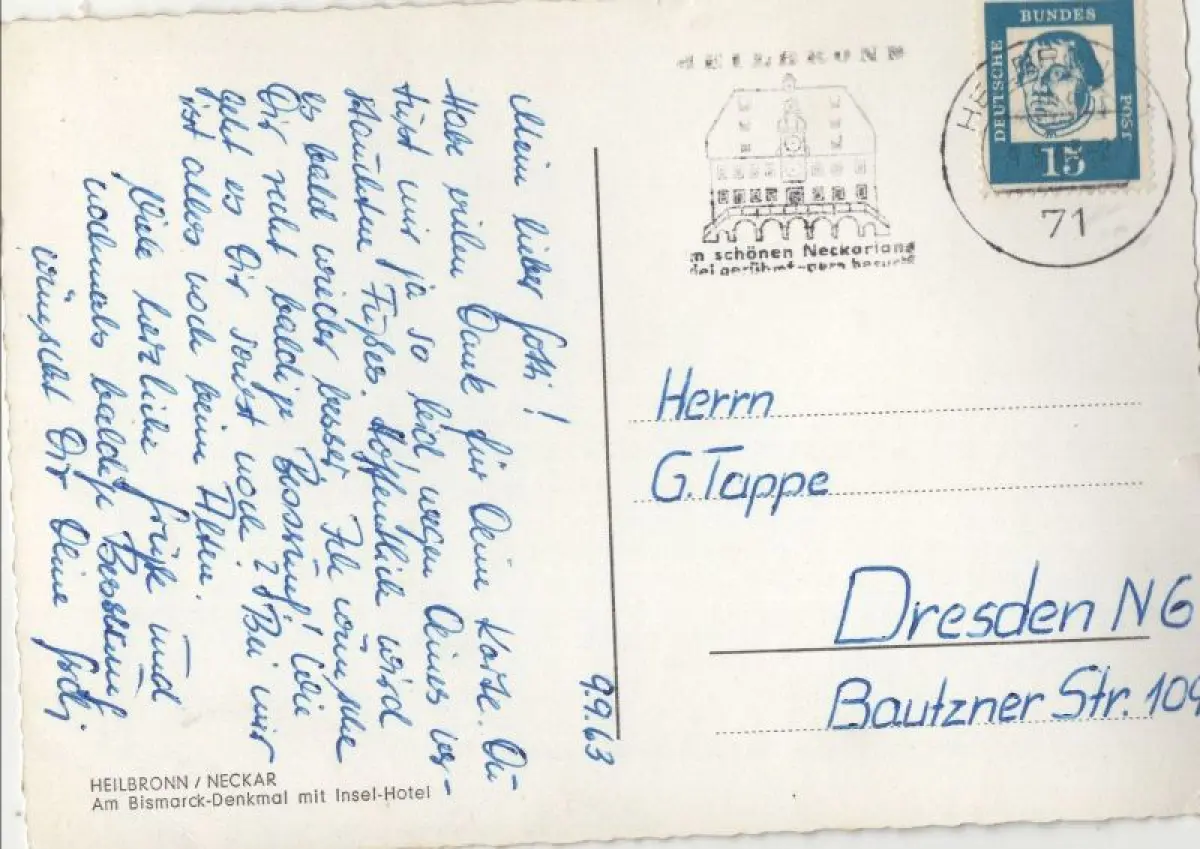 Mein lieber Gotti!
Habe vielen Dank für Deine Karte. Du
tust mir ja so leid wegen Deines ver-
stauchten Fußes. Hoffentlich wird
es bald wieder besser. Ich wünsche
Dir recht baldige Besserung! Wie
geht es Dir sonst noch? Bei mir
ist alles noch beim Alten.
Viele herzliche Grüße und
nochmals baldige Besserung
wünscht Dir Deine
9.9.63
HEILBRONN / NECKAR
Am Bismarck-Denkmal mit Insel-Hotel
HEILBRONN
m schönen Neckarland
DEUTSCHE BUNDES POST
15
71
Herrn
G. Tappe
Dresden N6
Bautzner Str. 109